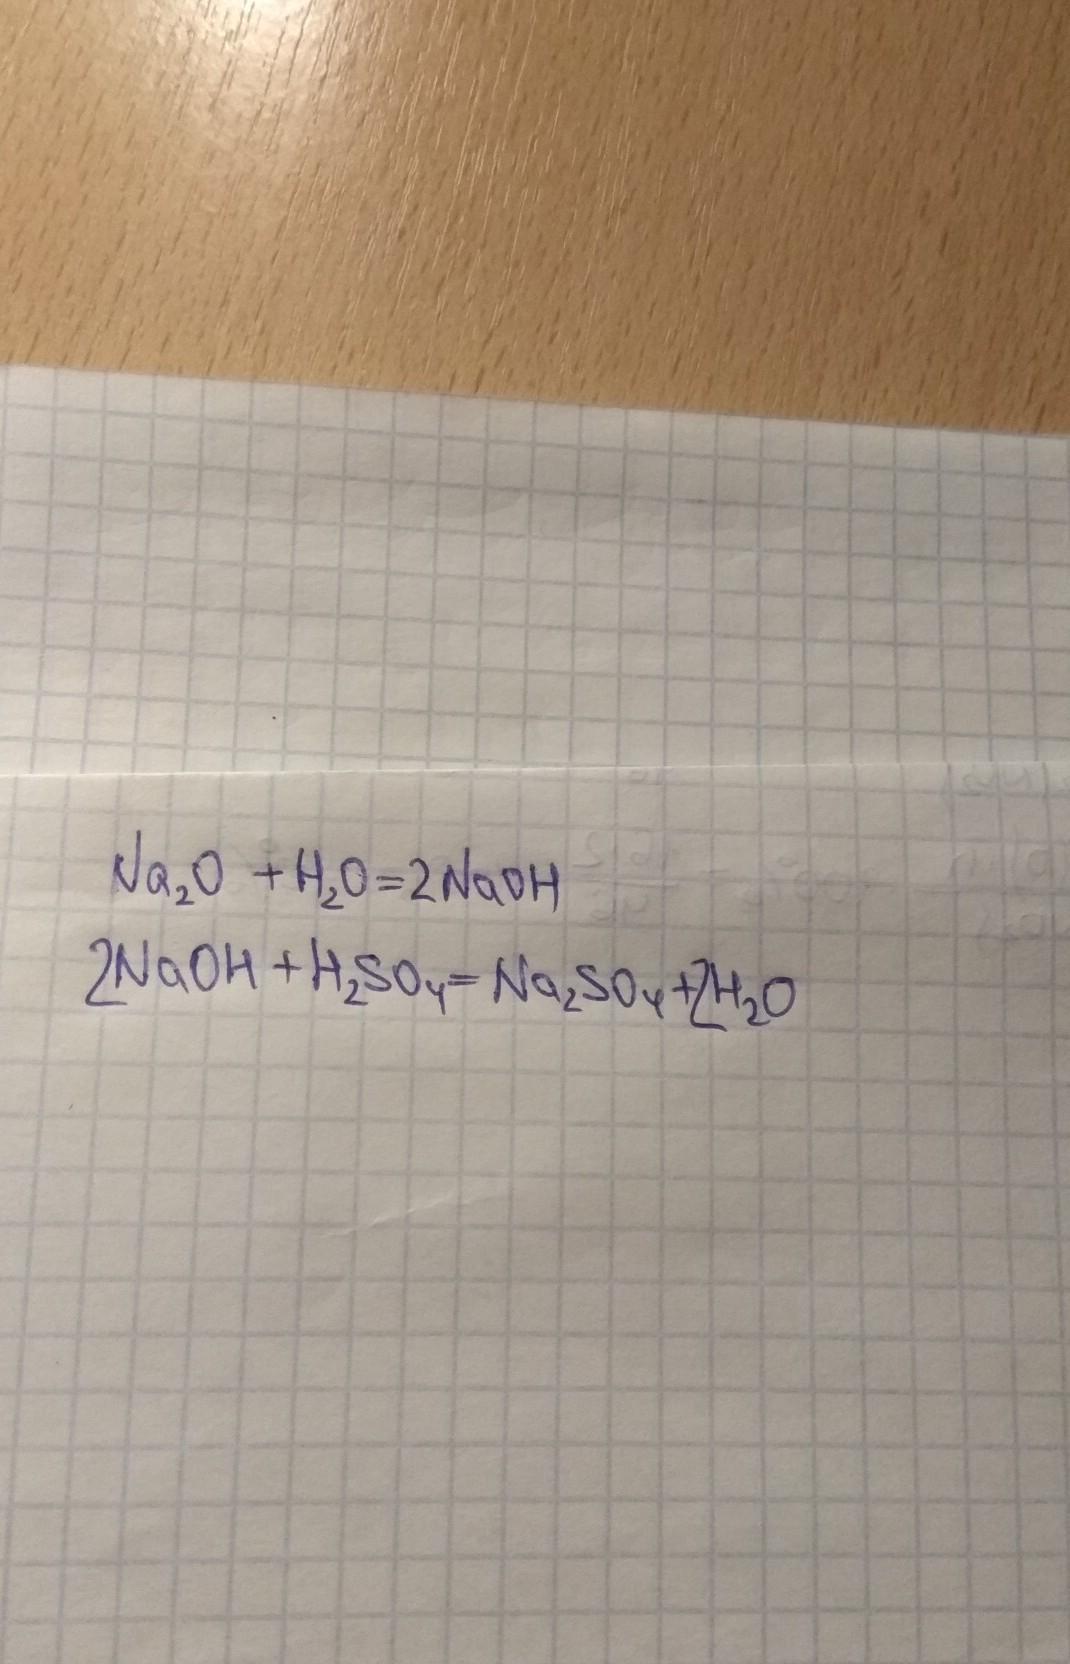 Na₂O + H₂O = 2NaOH
2NaOH + H₂SO₄ = Na₂SO₄ + 2H₂O